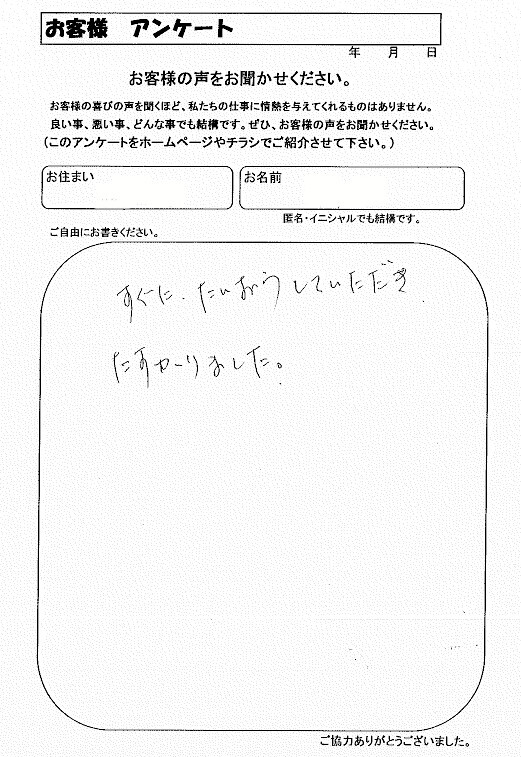 お客様 アンケート
年 月 日
お客様の声をお聞かせください。
お客様の喜びの声を聞くほど、私たちの仕事に情熱を与えてくれるものはありません。
良い事、悪い事、どんな事でも結構です。ぜひ、お客様の声をお聞かせください。
(このアンケートをホームページやチラシでご紹介させて下さい。)
お住まい お名前
匿名・イニシャルでも結構です。
ご自由にお書きください。
すぐに、たいおうしていただき
たすかりました。
ご協力ありがとうございました。